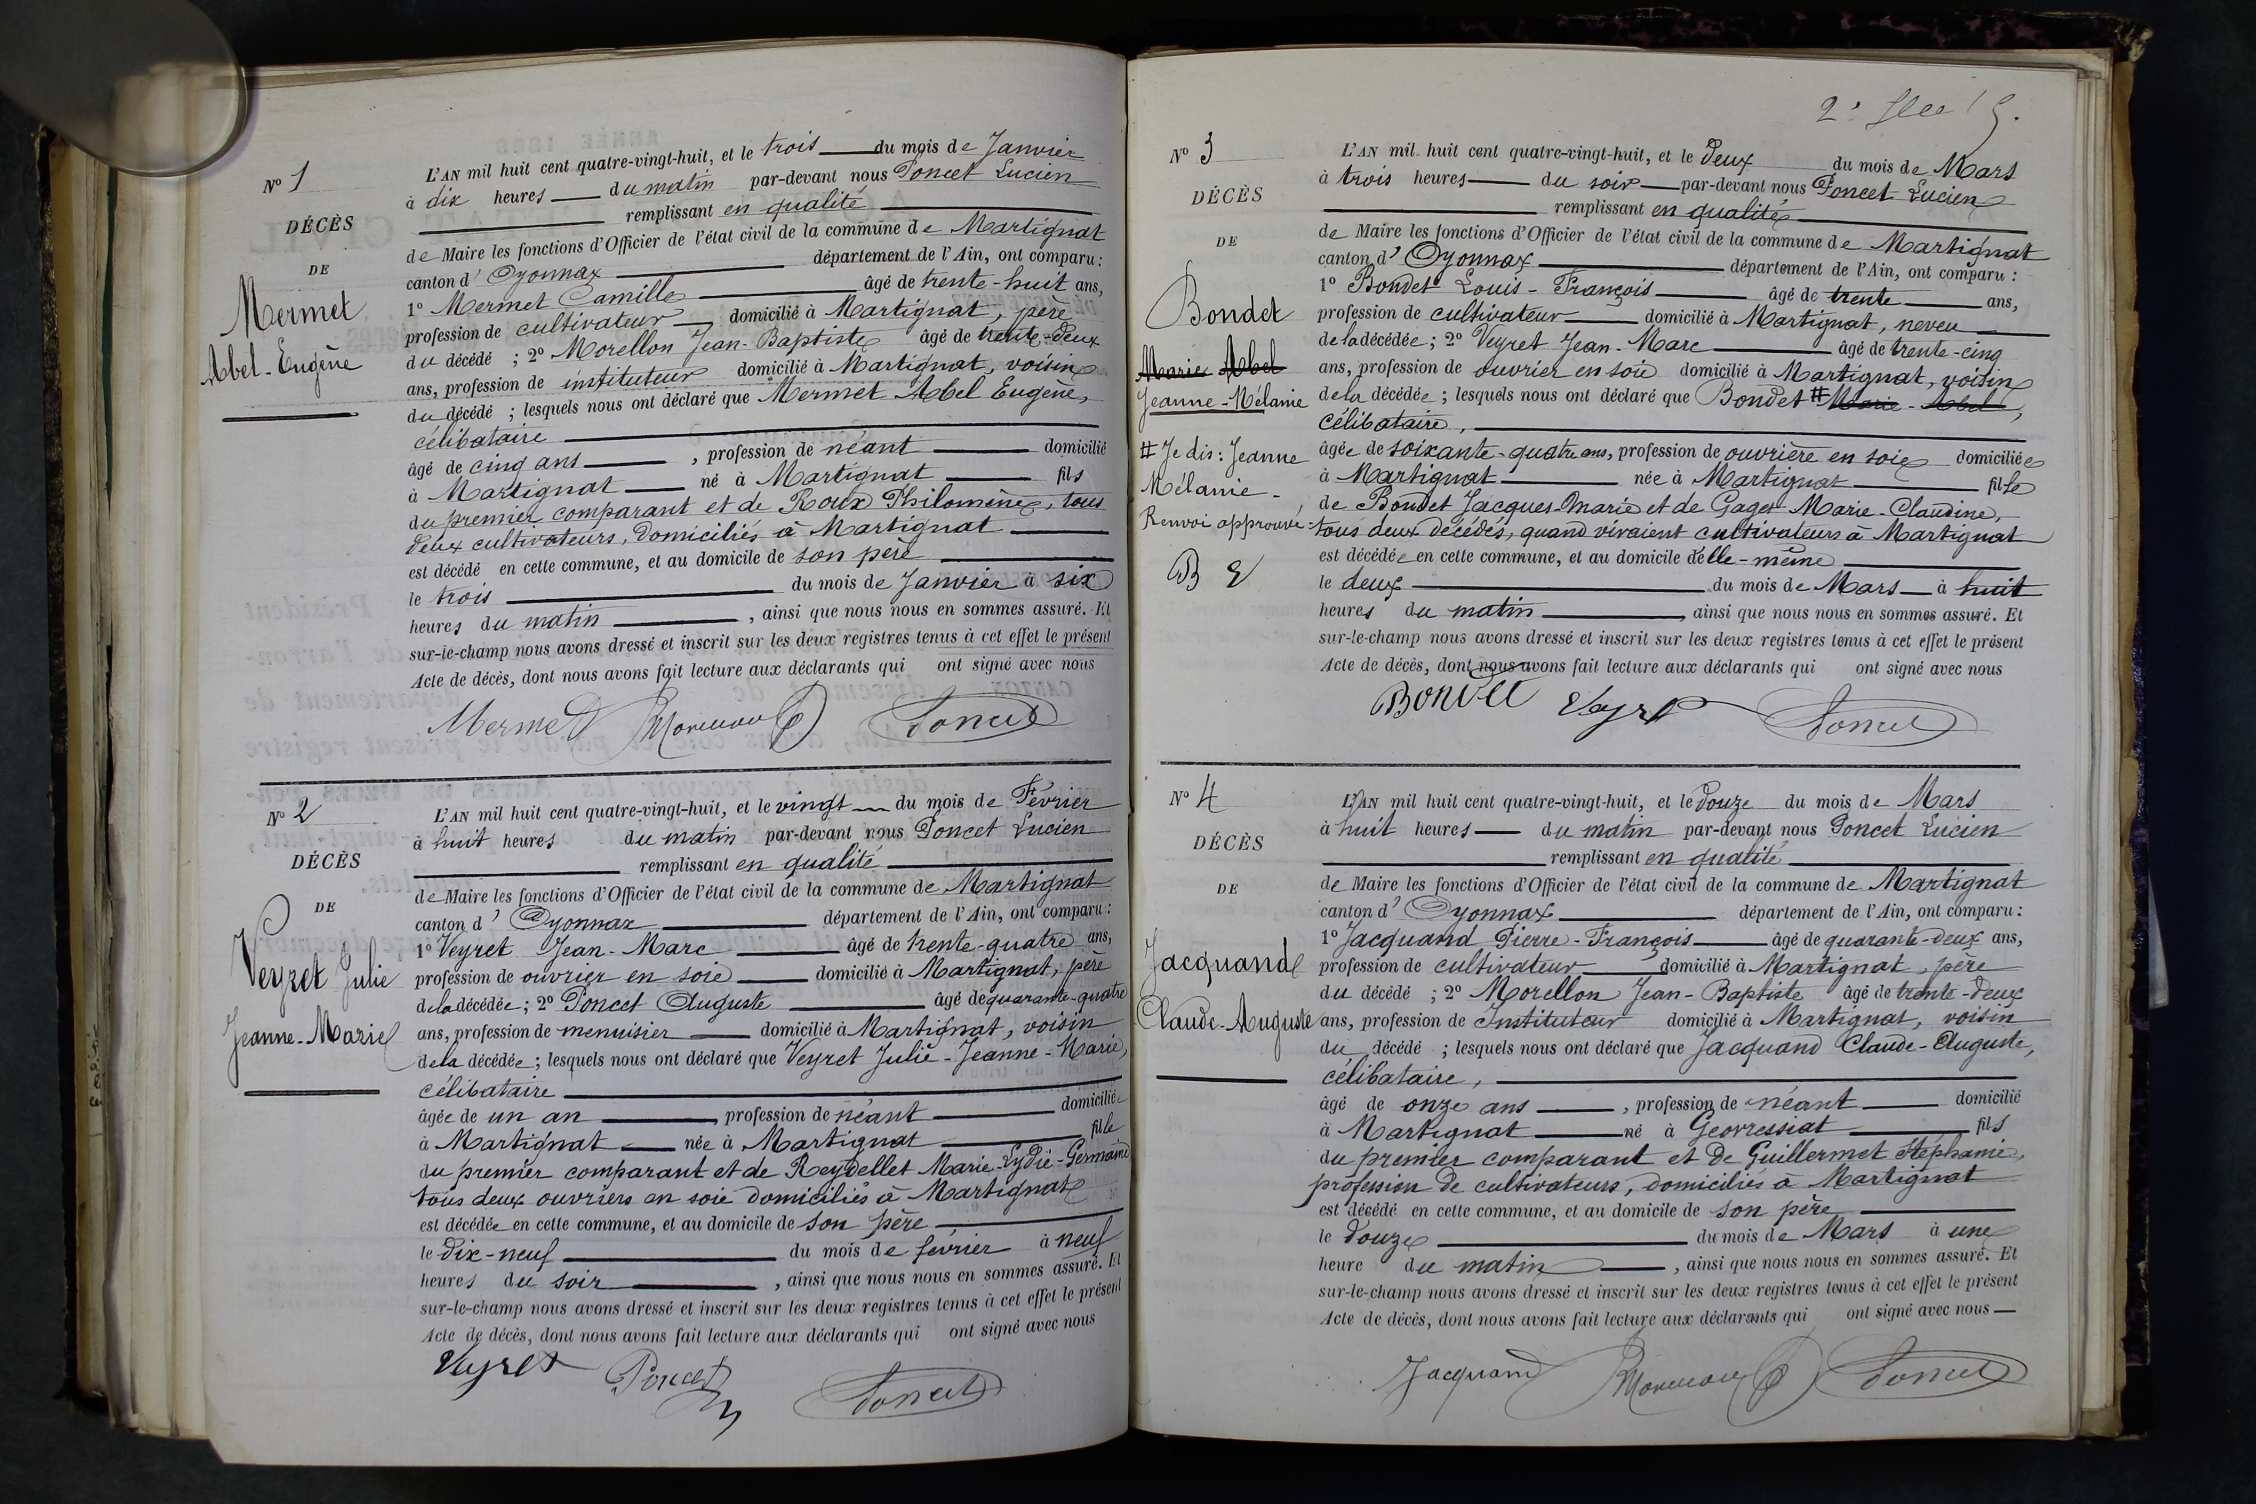 N° 1
DÉCÈS
DE
Mermet
Abel-Eugène
L'AN mil huit cent quatre-vingt-huit, et le trois du mois de Janvier
à dix heures du matin par-devant nous Poncet Lucien
remplissant en qualité
de Maire les fonctions d'Officier de l'état civil de la commune de Martignat
canton d' Oyonnax département de l'Ain, ont comparu :
1° Mermet Camille âgé de trente-huit ans,
profession de cultivateur domicilié à Martignat, père
du décédé ; 2° Morellon Jean-Baptiste âgé de trente-deux
ans, profession de instituteur domicilié à Martignat, voisin
du décédé ; lesquels nous ont déclaré que Mermet Abel Eugène,
célibataire
âgé de cinq ans , profession de néant domicilié
à Martignat né à Martignat fils
du premier comparant et de Roux Philomène, tous
deux cultivateurs, domiciliés à Martignat
est décédé en cette commune, et au domicile de son père
le trois du mois de Janvier à six
heures du matin , ainsi que nous nous en sommes assuré. Et
sur-le-champ nous avons dressé et inscrit sur les deux registres tenus à cet effet le présent
Acte de décès, dont nous avons fait lecture aux déclarants qui ont signé avec nous
Mermet Morellon Poncet
N° 2
DÉCÈS
DE
Veyret Julie
Jeanne-Marie
L'AN mil huit cent quatre-vingt-huit, et le vingt du mois de Février
à huit heures du matin par-devant nous Poncet Lucien
remplissant en qualité
de Maire les fonctions d'Officier de l'état civil de la commune de Martignat
canton d' Oyonnax département de l'Ain, ont comparu :
1° Veyret Jean-Marc âgé de trente-quatre ans,
profession de ouvrier en soie domicilié à Martignat, père
de la décédée ; 2° Poncet Auguste âgé de quarante-quatre
ans, profession de menuisier domicilié à Martignat, voisin
de la décédée ; lesquels nous ont déclaré que Veyret Julie-Jeanne-Marie,
célibataire
âgée de un an , profession de néant domiciliée
à Martignat née à Martignat fille
du premier comparant et de Reydellet Marie-Lydie-Germaine
tous deux ouvriers en soie domiciliés à Martignat
est décédée en cette commune, et au domicile de son père
le dix-neuf du mois de février à neuf
heures du soir , ainsi que nous nous en sommes assuré. Et
sur-le-champ nous avons dressé et inscrit sur les deux registres tenus à cet effet le présent
Acte de décès, dont nous avons fait lecture aux déclarants qui ont signé avec nous
Veyret Poncet Poncet
N° 3
DÉCÈS
DE
Bondet
Marie Abel
Jeanne-Mélanie
# Je dis : Jeanne
Mélanie -
Renvoi approuvé
L'AN mil huit cent quatre-vingt-huit, et le deux du mois de Mars
à trois heures du soir par-devant nous Poncet Lucien
remplissant en qualité
de Maire les fonctions d'Officier de l'état civil de la commune de Martignat
canton d' Oyonnax département de l'Ain, ont comparu :
1° Bondet Louis-François âgé de trente ans,
profession de cultivateur domicilié à Martignat, neveu
de la décédée ; 2° Veyret Jean-Marc âgé de trente-cinq
ans, profession de ouvrier en soie domicilié à Martignat, voisin
de la décédée ; lesquels nous ont déclaré que Bondet # Marie-Abel,
célibataire,
âgée de soixante-quatre ans, profession de ouvrière en soie domiciliée
à Martignat née à Martignat fille
de Bondet Jacques Marie et de Gages Marie-Claudine,
tous deux décédés, quand vivaient cultivateurs à Martignat
est décédée en cette commune, et au domicile d'elle-même
le deux du mois de Mars à huit
heures du matin , ainsi que nous nous en sommes assuré. Et
sur-le-champ nous avons dressé et inscrit sur les deux registres tenus à cet effet le présent
Acte de décès, dont nous avons fait lecture aux déclarants qui ont signé avec nous
Bondet Veyret Poncet
N° 4
DÉCÈS
DE
Jacquand
Claude-Auguste
L'AN mil huit cent quatre-vingt-huit, et le douze du mois de Mars
à huit heures du matin par-devant nous Poncet Lucien
remplissant en qualité
de Maire les fonctions d'Officier de l'état civil de la commune de Martignat
canton d' Oyonnax département de l'Ain, ont comparu :
1° Jacquand Pierre-François âgé de quarante-deux ans,
profession de cultivateur domicilié à Martignat, père
du décédé ; 2° Morellon Jean-Baptiste âgé de trente-deux
ans, profession de Instituteur domicilié à Martignat, voisin
du décédé ; lesquels nous ont déclaré que Jacquand Claude-Auguste,
célibataire,
âgé de onze ans , profession de néant domicilié
à Martignat né à Geovressiat fils
du premier comparant et de Guillermet Stéphanie,
profession de cultivateurs, domiciliés à Martignat
est décédé en cette commune, et au domicile de son père
le douze du mois de Mars à une
heure du matin , ainsi que nous nous en sommes assuré. Et
sur-le-champ nous avons dressé et inscrit sur les deux registres tenus à cet effet le présent
Acte de décès, dont nous avons fait lecture aux déclarants qui ont signé avec nous
Jacquand Morellon Poncet